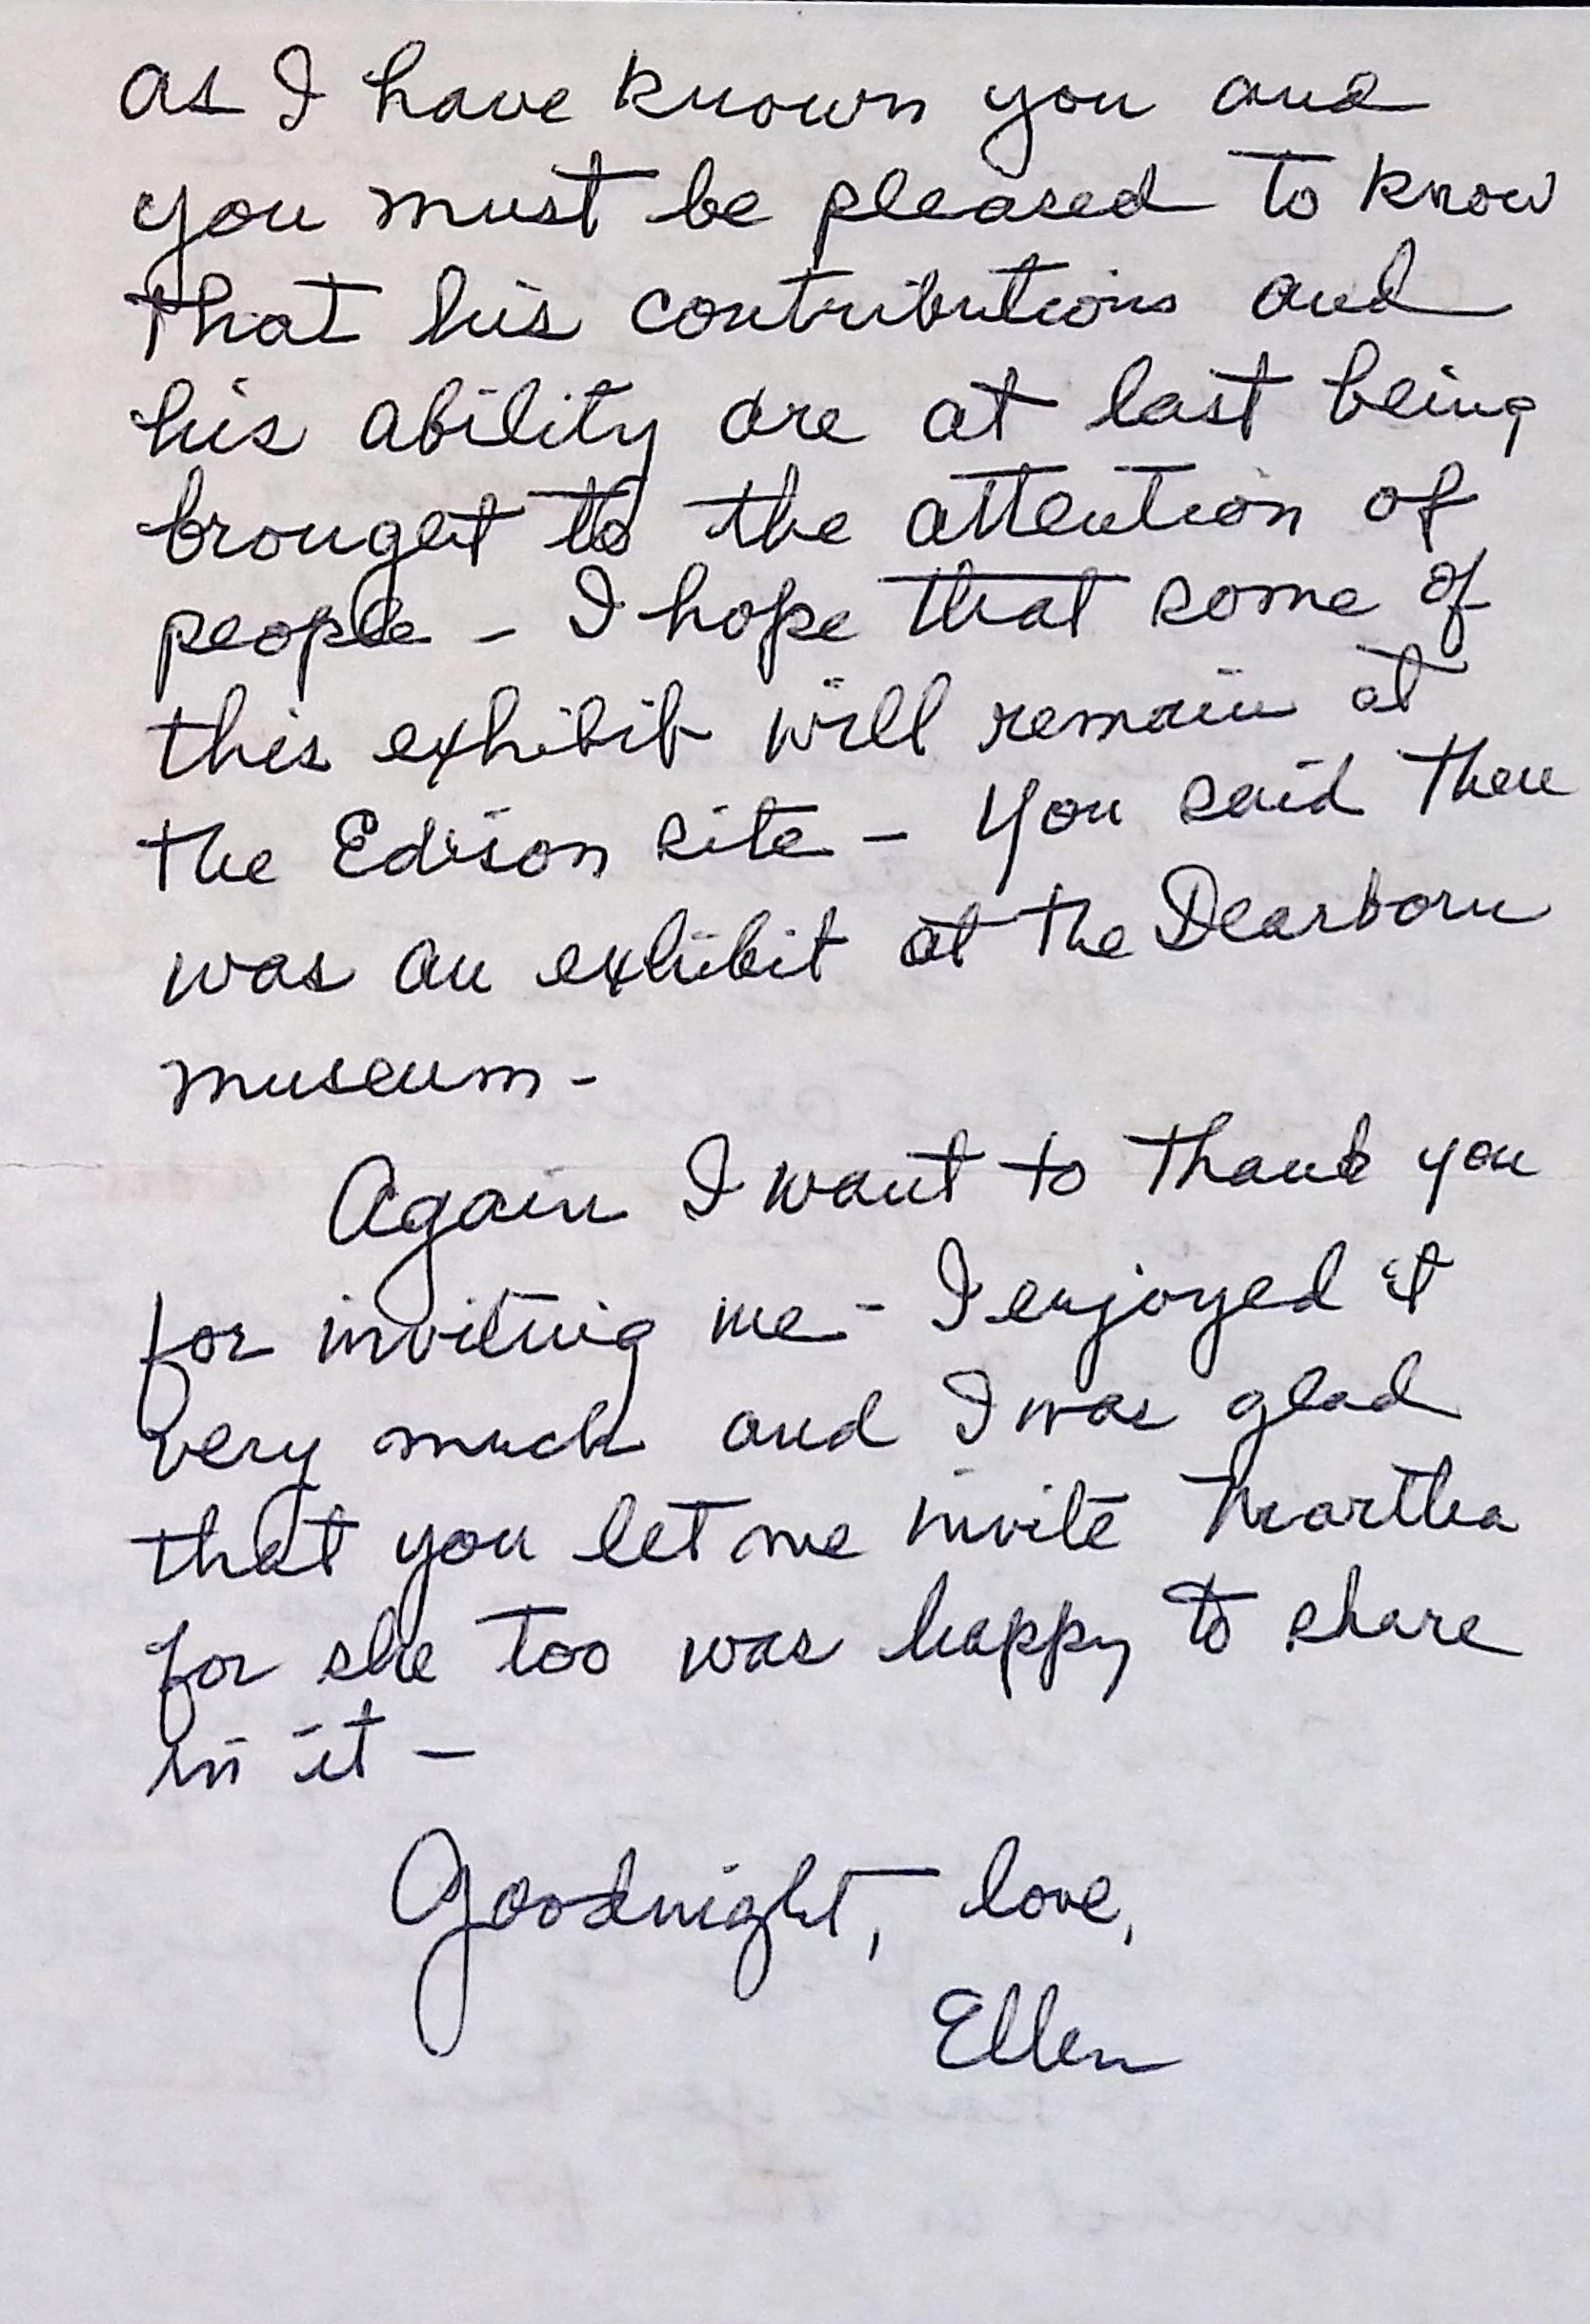 as I have known you and
you must be pleased to know
that his contributions and
his ability are at last being
brought to the attention of
people - I hope that some of
this exhibit will remain at
the Edison site - You said there
was an exhibit at the Dearborn
museum -
Again I want to thank you
for inviting me - I enjoyed it
very much and I was glad
that you let me invite Martha
for she too was happy to share
in it -
Goodnight, love,
Ellen